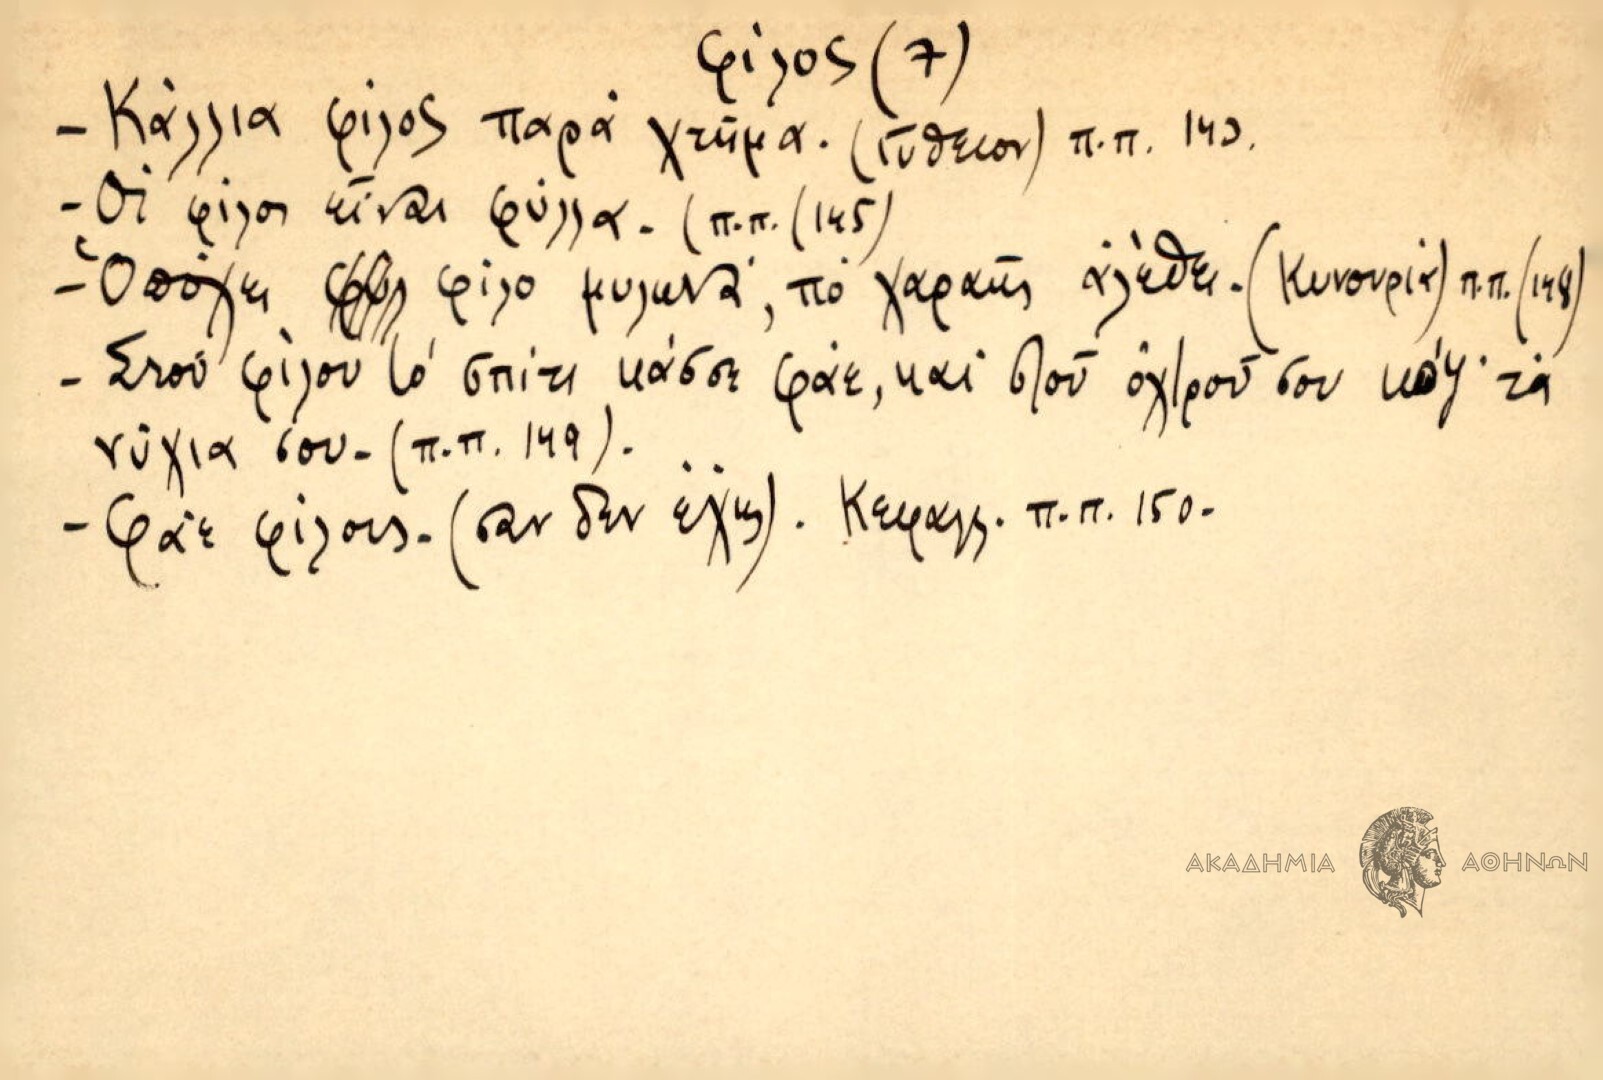 φίλος (7)
- Κάλλια φίλος παρὰ χτῆμα. (Γύθειον) π.π. 143.
- Οἱ φίλοι εἶναι φύλλα. (π.π. (145)
- Ὁπὄχει φίλο μυλωνᾶ, πὸ χαραῆς ἀλέθει. (Κυνουρία) π.π. (148)
- Στοῦ φίλου τὸ σπίτι κάσσε φάε, καὶ στοῦ ὀχτροῦ σου κόψ' τὰ
νύχια σου. (π.π. 149).
- Φάε φίλους. (σαν δεν έχης). Κεφαλλ. π.π. 150.
ΑΚΑΔΗΜΙΑ ΑΘΗΝΩΝ